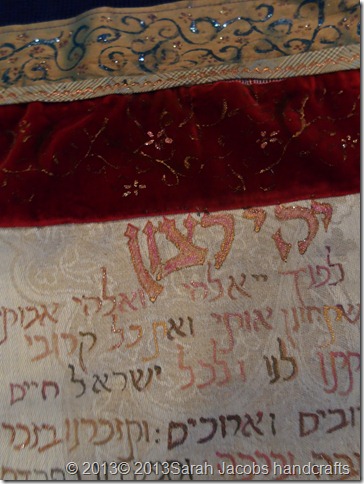 יהי רצון
לפניך ייאלהי ואלהי אבותי
אותי ואת כל קרובי
לנו ולכל ישראל חיים
ובים וארוכים: ותזכרנו בזכר
וברכה
© 2013© 2013Sarah Jacobs handcrafts